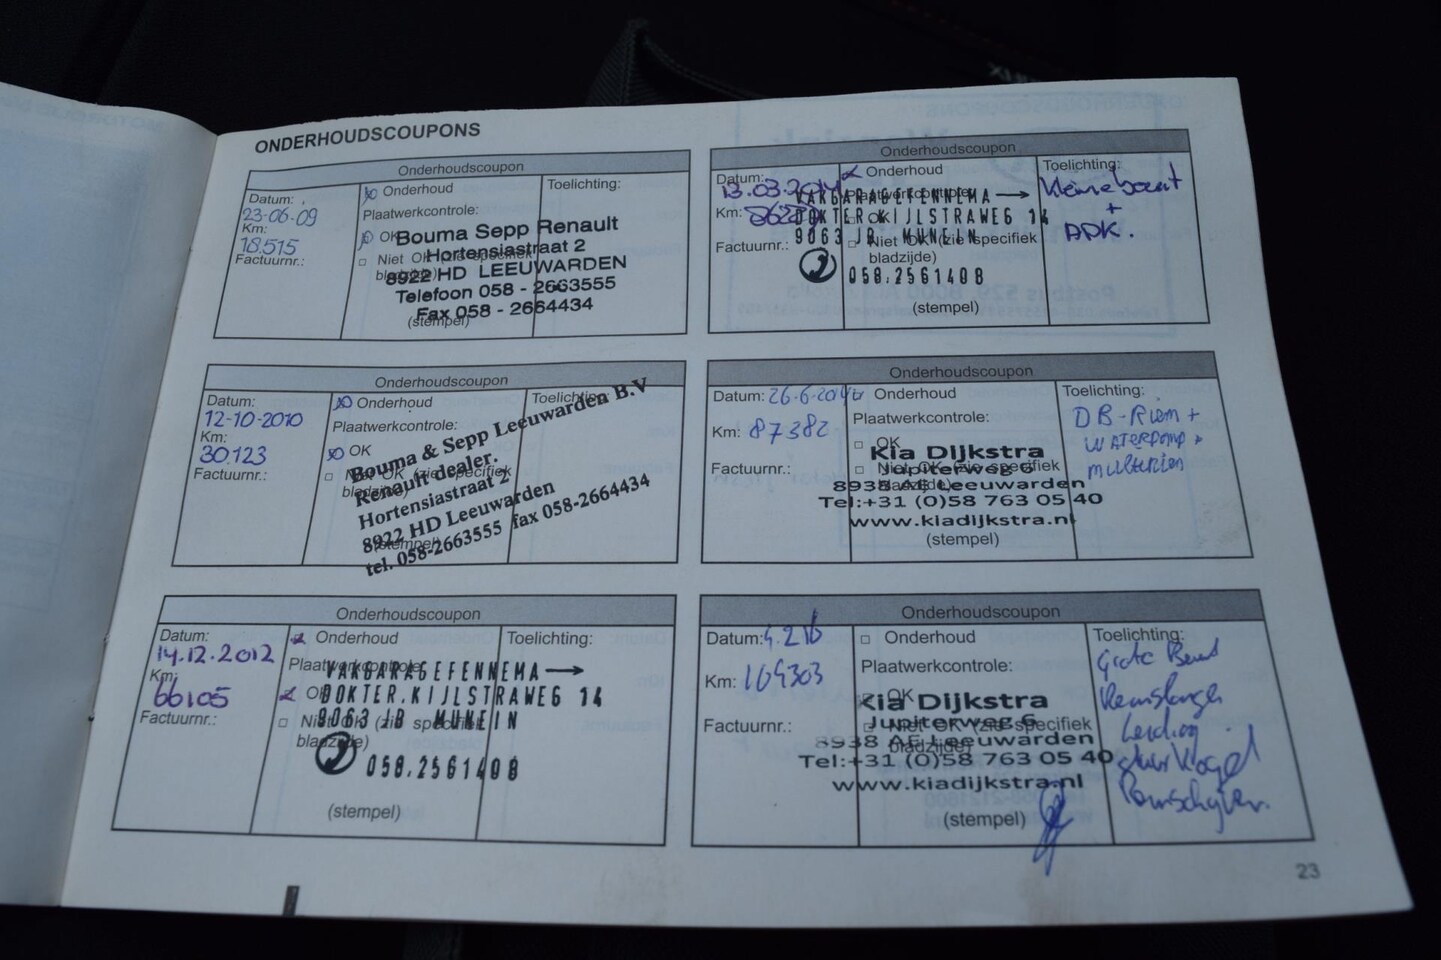 ONDERHOUDSCOUPONS
Onderhoudscoupon
Datum:
23-06-09
Km:
18.515
Factuurnr.:
Onderhoud
Plaatwerkcontrole:
OK
Niet OK (zie specifiek
bladzijde)
Bouma Sepp Renault
Hortensiastraat 2
8922 HD LEEUWARDEN
Telefoon 058 - 2663555
Fax 058 - 2664434
(stempel)
Toelichting:
Onderhoudscoupon
Datum:
13.03.2014
Km:
Factuurnr.:
Onderhoud
Plaatwerkcontrole:
OK
Niet OK (zie specifiek
bladzijde)
VAKGARAGEFENNEMA
DOKTER.KIJLSTRAWEG 14
9063 JB MUNEIN
058.2561408
(stempel)
Toelichting:
Kleine beurt
+
APK.
Onderhoudscoupon
Datum:
12-10-2010
Km:
30.123
Factuurnr.:
Onderhoud
Plaatwerkcontrole:
OK
Niet OK (zie specifiek
bladzijde)
Bouma & Sepp Leeuwarden B.V
Renault dealer.
Hortensiastraat 2
8922 HD Leeuwarden
tel. 058-2663555 fax 058-2664434
(stempel)
Toelichting:
Onderhoudscoupon
Datum: 26-6-2014
Km: 87382
Factuurnr.:
Onderhoud
Plaatwerkcontrole:
OK
Niet OK (zie specifiek
bladzijde)
Kia Dijkstra
Jupiterweg 6
8938 AE Leeuwarden
Tel:+31 (0)58 763 05 40
www.kiadijkstra.nl
(stempel)
Toelichting:
DB-Riem +
WATERPOMP +
multiriem
Onderhoudscoupon
Datum:
14.12.2012
Km:
66105
Factuurnr.:
Onderhoud
Plaatwerkcontrole:
OK
Niet OK (zie specifiek
bladzijde)
VAKGARAGEFENNEMA
DOKTER.KIJLSTRAWEG 14
9063 JB MUNEIN
058.2561408
(stempel)
Toelichting:
Onderhoudscoupon
Datum:
Km: 104303
Factuurnr.:
Onderhoud
Plaatwerkcontrole:
OK
Niet OK (zie specifiek
bladzijde)
Kia Dijkstra
Jupiterweg 6
8938 AE Leeuwarden
Tel:+31 (0)58 763 05 40
www.kiadijkstra.nl
(stempel)
Toelichting:
Grote Beurt
Remslangen
Leiding
stuurKogel
Remschijven.
23